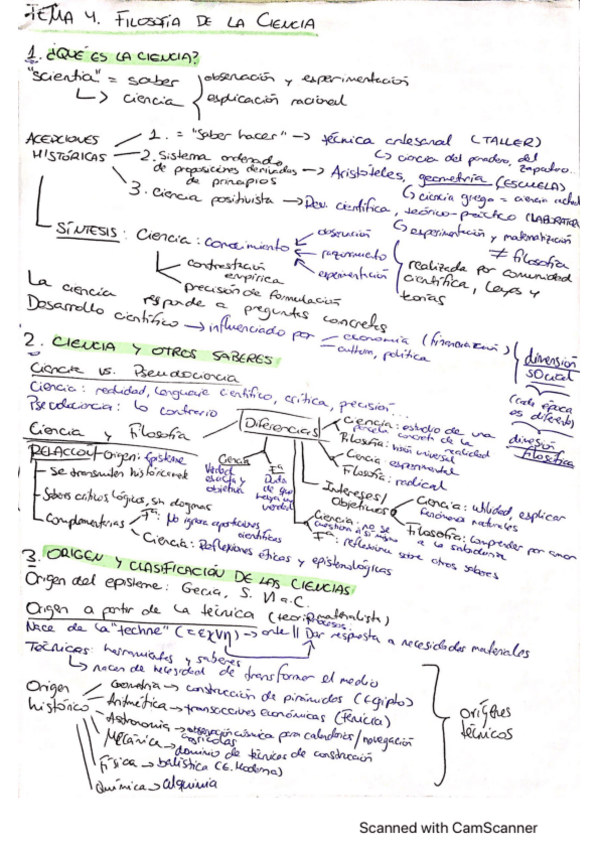 TEMA 4. FILOSOFÍA DE LA CIENCIA
1. ¿QUÉ ES LA CIENCIA?
"scientia" = saber
observación y experimentación
ciencia
explicación racional
ACEPCIONES HISTÓRICAS
1. = "saber hacer" → técnica artesanal (TALLER)
ciencia del panadero, del zapatero...
2. Sistema ordenado de proposiciones derivadas de principios → Aristóteles, geometría (ESCUELA)
ciencia griega = ciencia
3. Ciencia positivista → Rev. científica, teórico-práctico (LABORATORIO
experimentación y matematización
≠ filosofía
SÍNTESIS: Ciencia: conocimiento
observación
razonamiento
experimentación
realizada por comunidad científica, leyes y teorías
contrastación empírica
precisión de formulación
La ciencia responde a preguntas concretas
Desarrollo científico → influenciado por
economía (financiación)
cultura, política
dimensión social
(cada época es diferente)
2. CIENCIA Y OTROS SABERES
Ciencia vs. Pseudociencia
Ciencia: realidad, lenguaje científico, crítica, precisión...
Pseudociencia: lo contrario
Ciencia y Filosofía
Diferencias
Ciencia: estudio de una parcela concreta de la realidad
Filosofía: visión universal
Ciencia: experimental
Filosofía: radical
RELACCOU Origen: Episteme
Se transmiten históricamente
Saberes críticos, lógicos, sin dogmas
Complementarias
Fª: No ignora aportaciones científicas
Ciencia: Reflexiones éticas y epistemológicas
Ciencia
Verdad exacta y objetiva
Fª
Duda de que haya una verdad
Intereses/Objetivos
Ciencia: utilidad, explicar fenómenos naturales
Filosofía: comprender por amor a la sabiduría
Ciencia: no se cuestiona a sí misma
Fª: reflexiona sobre otros saberes
3. ORIGEN Y CLASIFICACIÓN DE LAS CIENCIAS
Origen del episteme: Grecia, S. VI a.C.
Origen a partir de la técnica (teoría materialista)
Nace de la "techne" (=τεχνη) → arte || Dar respuesta a necesidades materiales
Técnicas: herramientas y saberes
nacen de necesidad de transformar el medio
Origen histórico
Geometría → construcción de pirámides (Egipto)
Aritmética → transacciones económicas (Fenicia)
Astronomía → observación cósmica para calendarios/navegación
agrícolas
Mecánica → dominio de técnicas de construcción
Física → balística (E. Moderna)
Química → alquimia
orígenes técnicos
Scanned with CamScanner